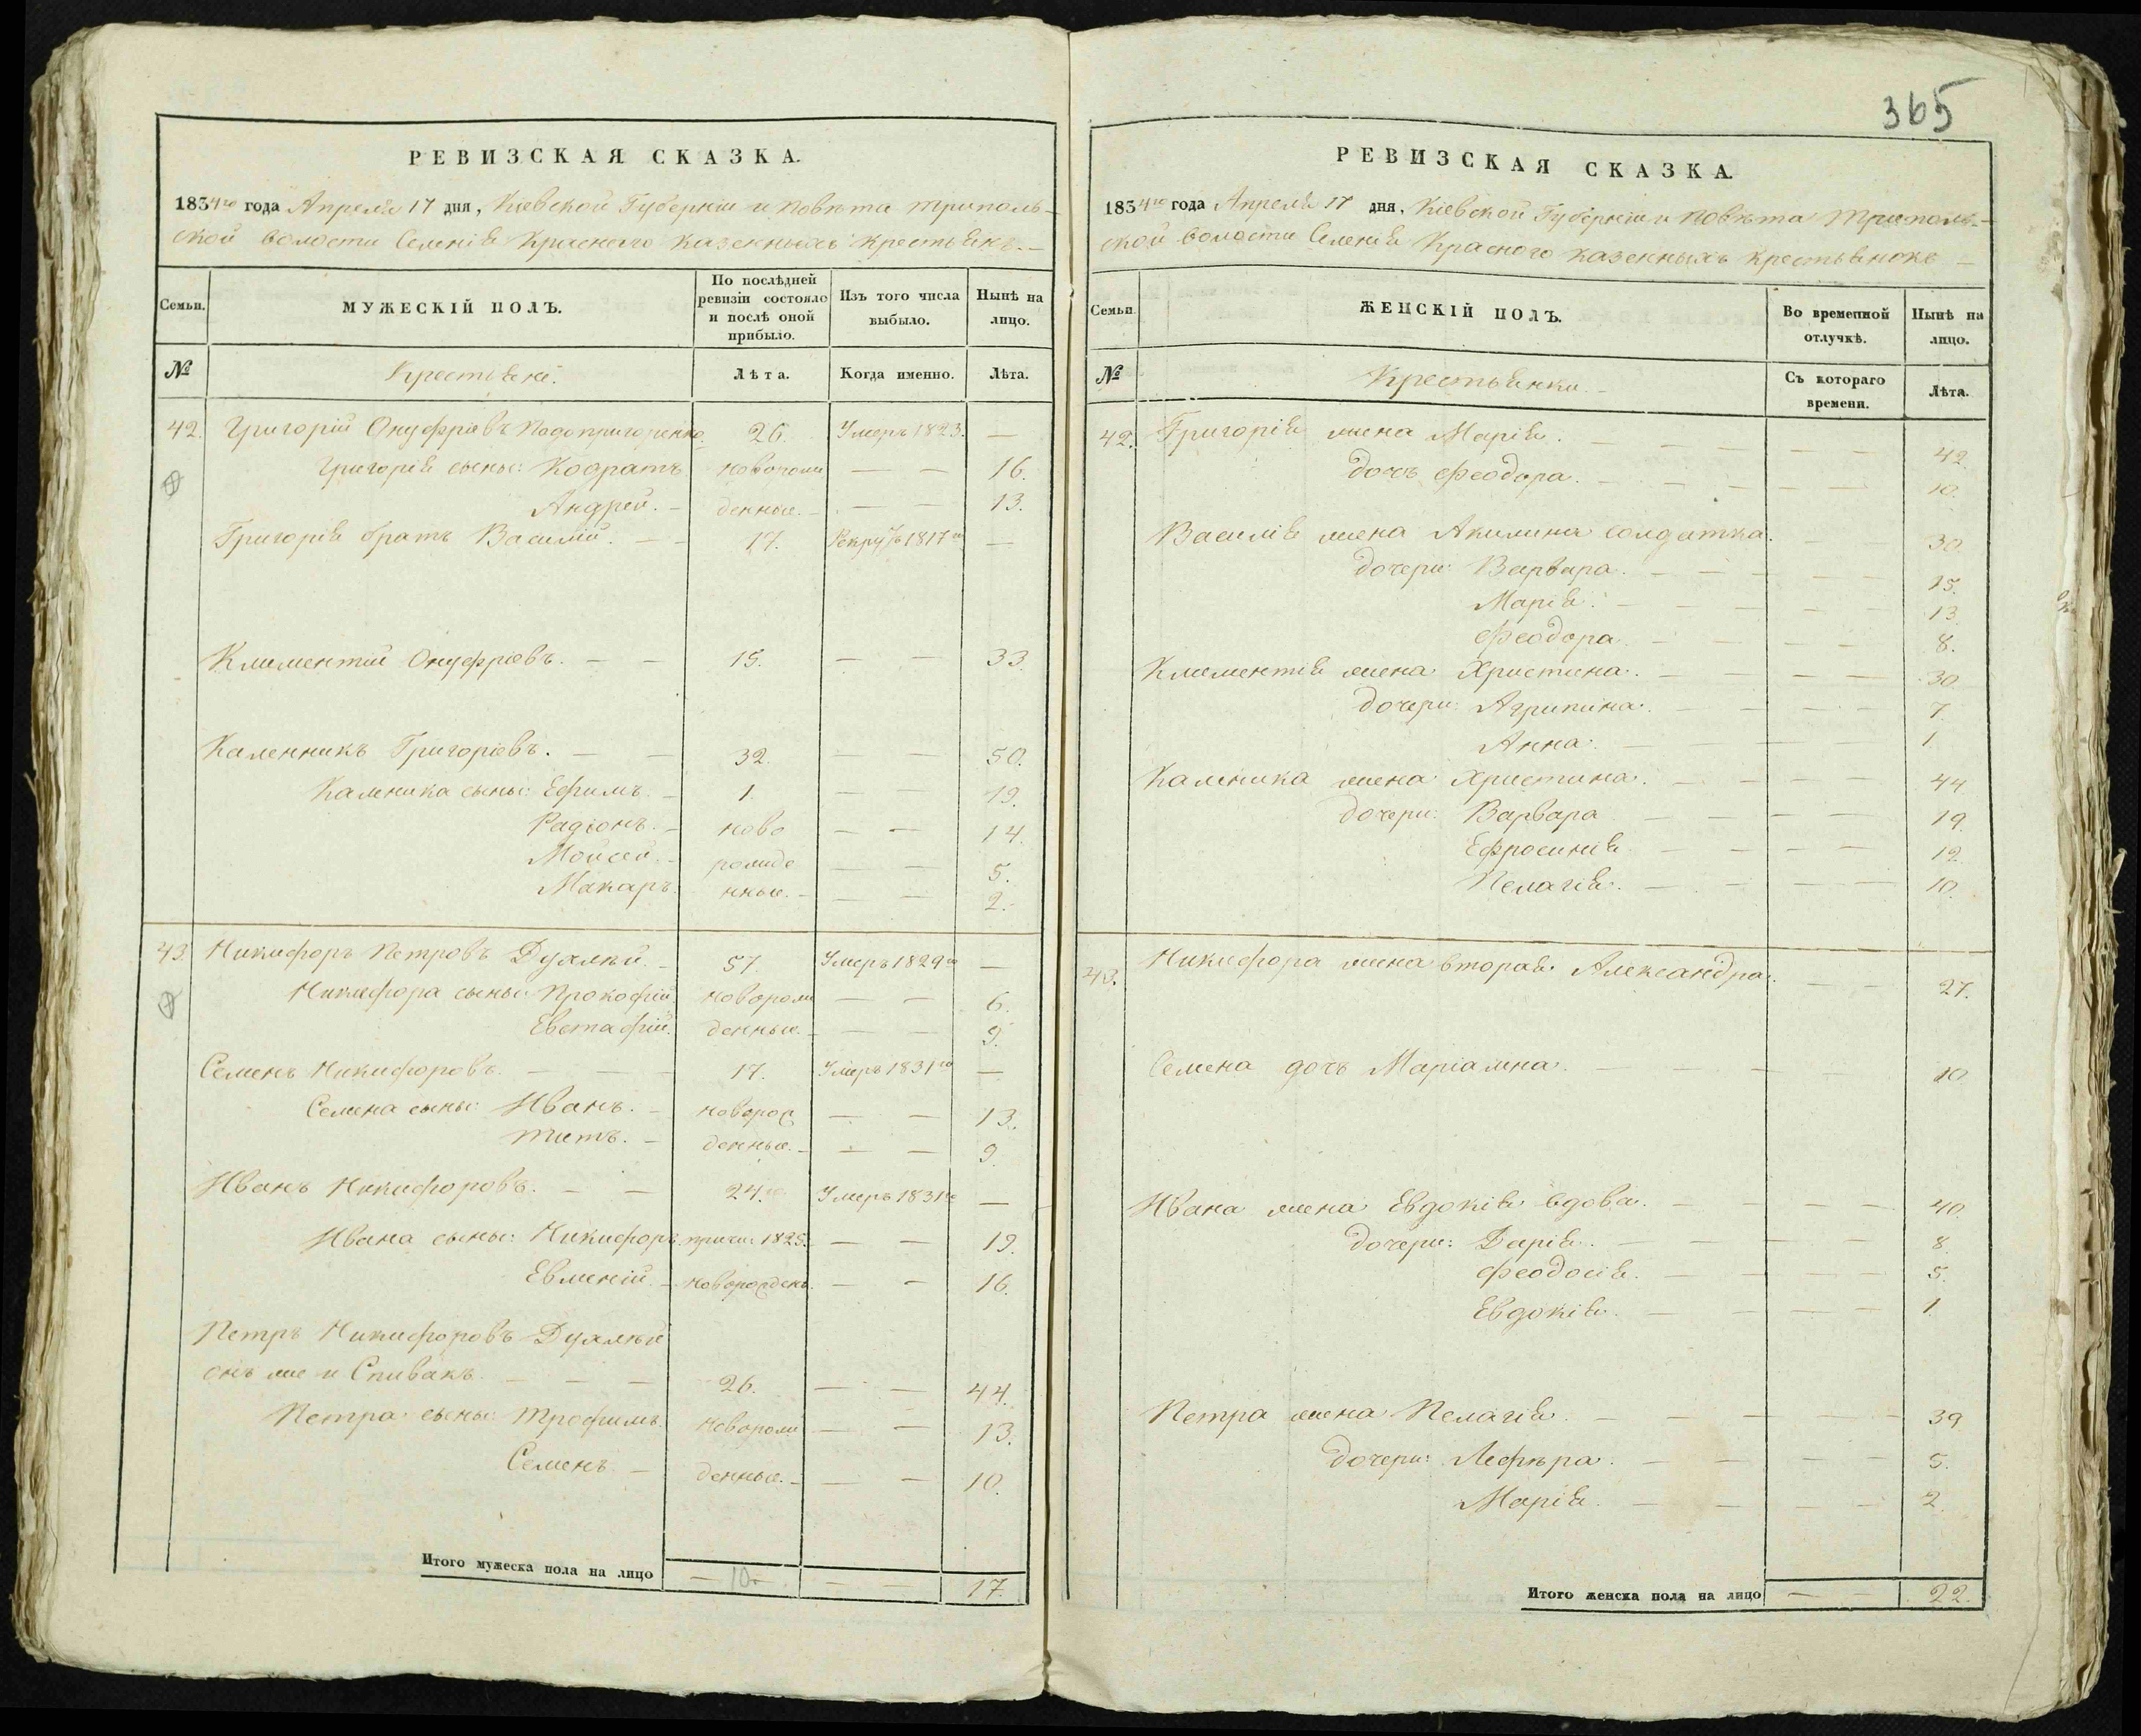 РЕВИЗСКАЯ СКАЗКА.
1834го года Апреля 17 дня, Кіевской Губерніи и Повѣта Триполь-
ской волости Селенія Красного казенныхъ крестьянъ.
Семьи. МУЖЕСКІЙ ПОЛЪ. По послѣдней ревизіи состояло и послѣ оной прибыло. Изъ того числа выбыло. Нынѣ на лицо.
№ Крестьяне. Лѣта. Когда именно. Лѣта.
42. Григорій Онуфріевъ 26. Умеръ 1823. —
Григорія сыны: Кодратъ новорож — — 16.
Андрей. — денные. — — — 13.
Григорія братъ Василій. — — 17. Рекрутъ 1817го —
Климентій Онуфріевъ. — — 15. — — 33.
Каленникъ Григоріевъ. — — 32. — — 50.
Каленика сыны: Ефимъ. — 1. — 19.
Радіонъ. — ново — — 14.
Мойсей. — рожде — — 5.
Макаръ. нные. — — — 2.
43. Никифоръ Петровъ Дудлѣй. — 57. Умеръ 1829го —
Никифора сыны: Прокофій. новорож — — 6.
Евстафій. денные. — — — 9.
Семенъ Никифоровъ. — — — 17. Умеръ 1831го —
Семена сыны: Иванъ. — новорож — — 13.
Титъ. — денные. — — — 9.
Иванъ Никифоровъ. — — 24. Умеръ 1831го —
Ивана сыны: Никифоръ. 1825. — — 19.
Евменій. — новорожден. — — 16.
Петръ Никифоровъ Дудлѣй
онъ же и Спивакъ. — — — 26. — — 44.
Петра сыны: Трофимъ. новорож — — 13.
Семенъ. — денные. — — — 10.
Итого мужеска пола на лицо — 10. — — 17.
365
РЕВИЗСКАЯ СКАЗКА.
1834го года Апреля 17 дня, Кіевской Губерніи и Повѣта Триполь-
ской волости Селенія Красного казенныхъ крестьянокъ —
Семьи. ЖЕНСКІЙ ПОЛЪ. Во временной отлучкѣ. Нынѣ на лицо.
№ Крестьянки. — Съ котораго времени. Лѣта.
42. Григорія жена Марія. — — — — — 42.
дочь Феодора. — — — — — 10.
Василія жена Акилина солдатка. — — 30.
дочери: Варвара. — — — — — 15.
Марія. — — — — — 13.
Феодора. — — — — — 8.
Климентія жена Христина. — — — — — 30.
дочери: Агрипина. — — — — 7.
Анна. — — — — 1
Каленика жена Христина. — — — — 44
дочери: Варвара — — — — 19.
Ефросинія. — — — — 12.
Пелагія. — — — — 10.
43. Никифора жена вторая Александра. — — 27.
Семена дочь Маріамна. — — — — 10
Ивана жена Евдокія вдова. — — — — 40.
дочери: Дарія. — — — — 8.
Феодосія. — — — — 5.
Евдокія. — — — — 1.
Петра жена Пелагія. — — — — — 39
дочери: — — — — 5.
Марія. — — — — 2.
Итого женска пола на лицо — — 22.